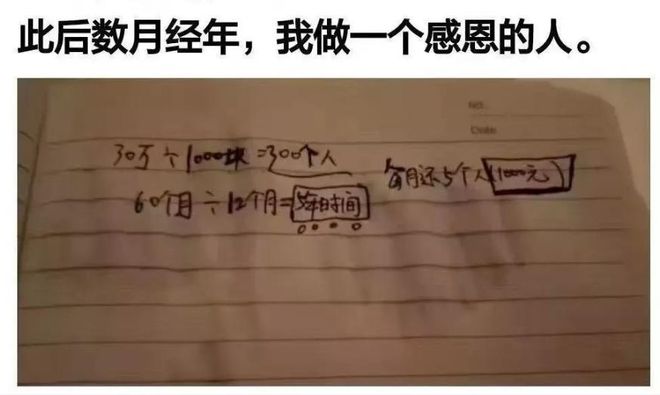 此后数月经年，我做一个感恩的人。
No.
Date
30万÷1000块=300个人
每月还5个人(1000元)
60个月÷12个月=5年时间